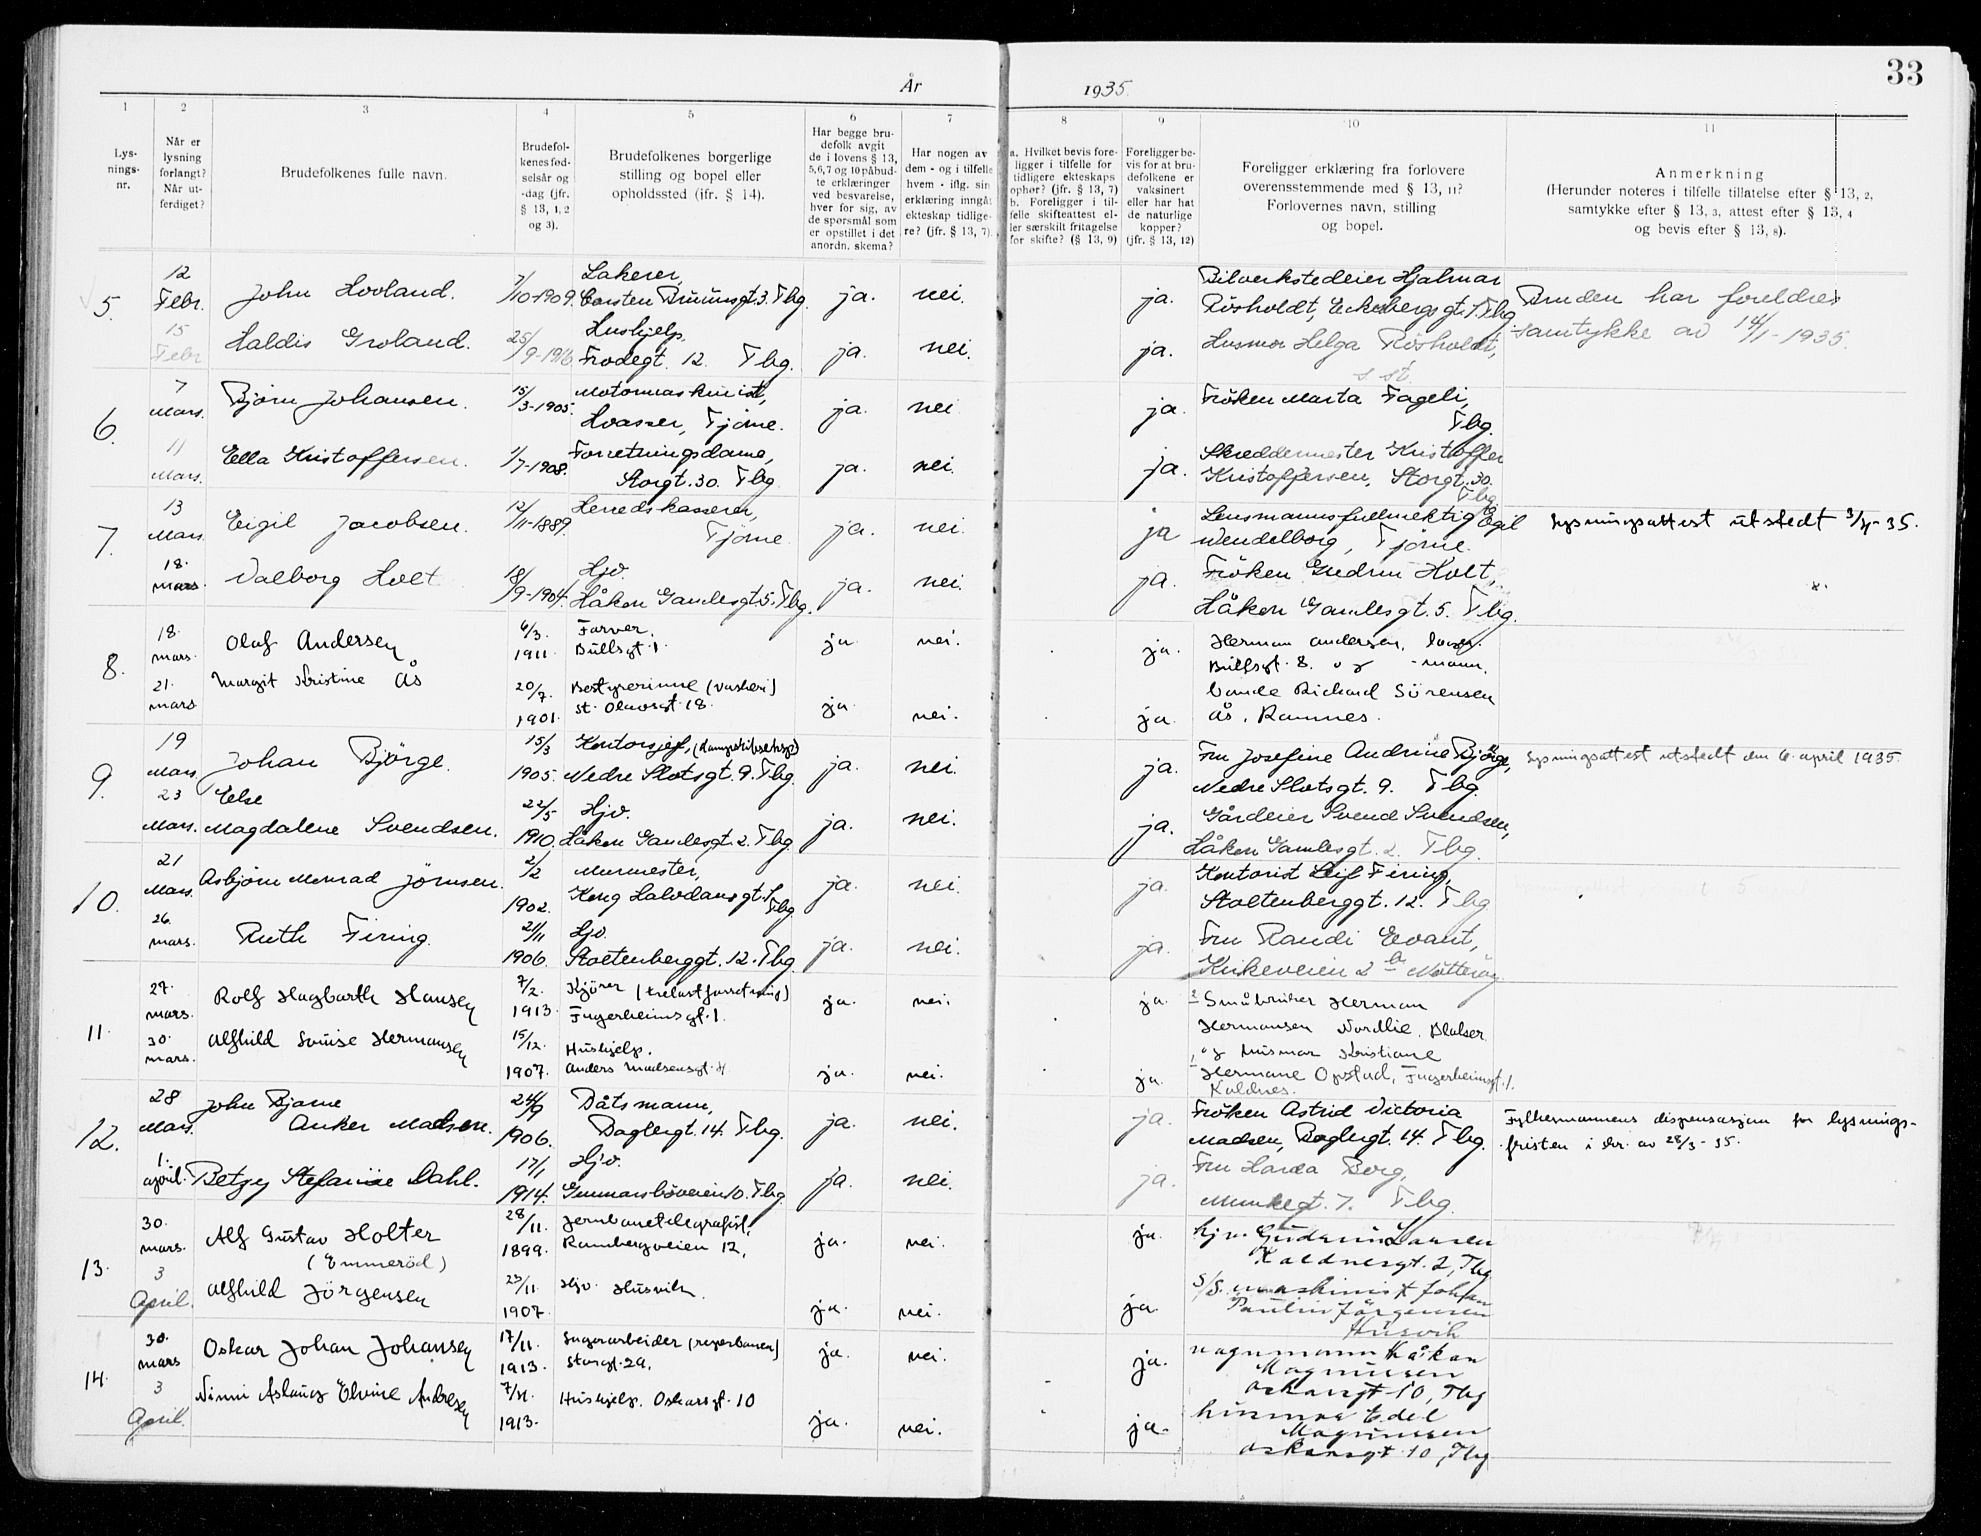 33
År 1935.
1 2 3 4 5 6 7 8 9 10 11
Lysningsnr.
Når er lysning forlangt? Når utferdiget?
Brudefolkenes fulle navn.
Brudefolkenes fødselsår og -dag (jfr. § 13, 1, 2 og 3).
Brudefolkenes borgerlige stilling og bopel eller opholdssted (ifr. § 14).
Har begge brudefolk avgit de i lovens § 13, 5, 6, 7 og 10 påbudte erklæringer ved besvarelse, hver for sig, av de spørsmål som er opstillet i det anordn. skema?
Har nogen av dem - og i tilfelle hvem - iflg. sin erklæring inngåt ekteskap tidligere? (jfr. § 13, 7).
a. Hvilket bevis foreligger i tilfelle for tidligere ekteskaps ophør? (jfr. § 13, 7)
b. Foreligger i tilfelle skifteattest eller særskilt fritagelse for skifte? (§ 13, 9)
Foreligger bevis for at brudefolkene er vaksinert eller har hat de naturlige kopper? (jfr. § 13, 12)
Foreligger erklæring fra forlovere overensstemmende med § 13, 11? Forlovernes navn, stilling og bopel.
Anmerkning
(Herunder noteres i tilfelle tillatelse efter § 13, 2, samtykke efter § 13, 3, attest efter § 13, 4 og bevis efter § 13, 8).
5. 12 Febr. John Hovland. 7/10-1909. Lakerer, Carsten Bruunsgt. 3. Tbg. ja. nei. ja. Bilverkstedeier Hjalmar Røsholdt, Eckesbergsgt. 1. Tbg. Bruden har foreldres
15 Febr Haldis Groland. 25/9-1916 Hushjelp, Frodegt. 12. Tbg. ja. nei. ja. Husmor Helga Røsholdt, s. st. samtykke av 14/1-1935.
6. 7 Mars. Bjørn Johansen. 15/3-1905. Motormaskinist, Hvasser, Tjøme. ja. nei ja. Frøken Marta Fageli, Tbg.
11 Mars. Ella Kristoffersen. 1/7-1908. Forretningsdame, Storgt. 30. Tbg ja. nei. ja. Skreddermester Kristoffer Kristoffersen, Storgt. 30. Tbg
7. 13 Mars. Eigil Jacobsen. 12/11-1889. Herredskasserer, Tjøme ja. nei. ja Lensmannsfullmektig Egil Wendelborg, Tjøme. Lysningsattest utstedt 3/4-35.
18. mars. Valborg Holt 18/9-1904. Hjv. Håkon Gamlesgt. 5. Tbg. ja. nei. ja. Frøken Gudrun Holt, Håkon Gamlesgt. 5. Tbg.
8. 18. mars. Olaf Andersen 6/3. 1911 Farver. Bullsgt. 1 ja nei. ja. Herman Andersen, Bullsgt. 8. og
21. mars Margit Kristine Ås 20/7. 1901. Bestyrerinne (vaskeri) St. Olavsgt. 18 ja nei. ja. Richard Sörensen Ås, Ramnes.
9. 19 Mars Johan Bjørge. 15/3 1905. Kontorsjef, Nedre Slotsgt. 9. Tbg. ja. nei. ja. Fru Josefine Andrine Bjørge, Nedre Slotsgt. 9. Tbg. Lysningsattest utstedt den 6. april 1935.
23 Mars. Else Magdalene Svendsen. 22/5 1910. Hjv. Håkon Gamlesgt. 2. Tbg ja. nei. ja. Gårdeier Svend Svendsen, Håkon Gamlesgt. 2. Tbg.
10. 21 Mars. Asbjørn Monrad Jørnsen. 2/2 1902. Murmester, Kong Halvdansgt. 1 Tbg ja. nei. ja. Kontorist Leif Firing, Stoltenberggt. 12. Tbg
26. mars. Ruth Firing. 21/11 1906. Hjv. Stoltenberggt. 12. Tbg ja. nei. ja. Fru Randi Evant, Kirkeveien 2 b Nøtterøy
11. 27. mars. Rolf Hagbarth Hansen 7/2. 1913 Kjører (trelastforretning) Fagerheimsgt. 1. ja nei. ja. Småbruker Herman Hermansen Nordlie,
30. mars. Alfhild Louise Hermansen 15/12. 1907. Hushjelp. Anders Madsensgt. ja. nei. ja. og husmor Kristiane Hermane Opstad, Fagerheimsgt. 1. Kaldnes.
12. 28 Mars. John Bjarne Anker Madsen. 24/9 1906. Båtsmann, Baglergt. 14. Tbg. ja. nei. ja. Frøken Astrid Victoria Madsen, Baglergt. 14. Tbg. Fylkesmannens dispensasjon for lysningsfristen i br. av 28/3-35.
1. april. Betzy Stefanie Dahl. 17/1 1914. Hjv. Gunnarsbøveien 10. Tbg. ja. nei. ja. Fru Borg, Munkegt. 7. Tbg.
13. 30. mars. Alf Gustav Holter (Emmeröd) 28/11. 1899. Jernbanetelegrafist, Rambergveien 12, ja. nei. ja. hjv. Gudrun Larsen Kaldnesgt. 2, Tbg
3 April. Alfhild Jörgensen 23/11. 1907. Hjv. Husvik ja. nei. ja. S/S. maskinist Johan Paulin Jörgensen Husvik
14. 30. mars Oskar Johan Johansen 17/11. 1913. Lagerarbeider (reperbanen) Storgt. 29. ja. nei. ja. vognmann Håkon Magnussen Oskarsgt 10, Tbg
3 April. Ninni Aslaug Elvine Andresen 7/11. 1913. Hushjelp. Oskarsgt. 10 ja. nei. ja. husmor Edel Magnussen Oskarsgt 10, Tbg